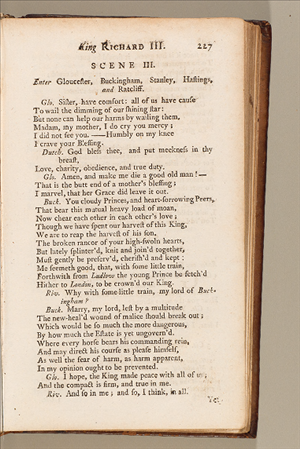 King RICHARD III. 227
SCENE III.
Enter Gloucester, Buckingham, Stanley, Hastings,
and Ratcliff.
Glo. Sister, have comfort: all of us have cause
To wail the dimming of our shining star:
But none can help our harms by wailing them.
Madam, my mother, I do cry you mercy;
I did not see you. —— Humbly on my knee
I crave your Blessing.
Dutch. God bless thee, and put meekness in thy
breast,
Love, charity, obedience, and true duty.
Glo. Amen, and make me die a good old man! —
That is the butt end of a mother's blessing;
I marvel, that her Grace did leave it out.
Buck. You cloudy Princes, and heart-sorrowing Peers,
That bear this mutual heavy load of moan,
Now chear each other in each other's love;
Though we have spent our harvest of this King,
We are to reap the harvest of his son.
The broken rancor of your high-swoln hearts,
But lately splinter'd, knit and join'd together,
Must gently be preserv'd, cherish'd and kept:
Me seemeth good, that, with some little train,
Forthwith from Ludlow the young Prince be fetch'd
Hither to London, to be crown'd our King.
Riv. Why with some little train, my lord of Buck-
ingham?
Buck. Marry, my lord, lest by a multitude
The new-heal'd wound of malice should break out;
Which would be so much the more dangerous,
By how much the Estate is yet ungovern'd.
Where every horse bears his commanding rein,
And may direct his course as please himself,
As well the fear of harm, as harm apparent,
In my opinion ought to be prevented.
Glo. I hope, the King made peace with all of us;
And the compact is firm, and true in me.
Riv. And so in me; and so, I think, in all.
Yet